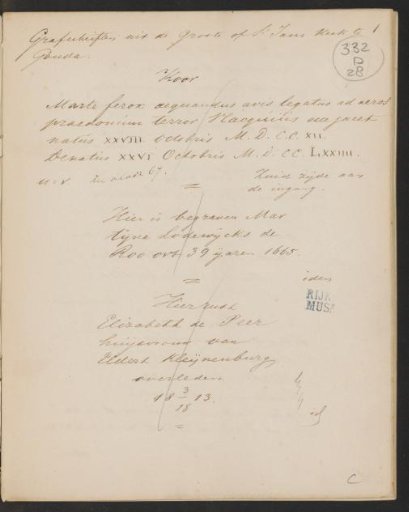 Grafschriften uit de Groote of St Jans Kerk te 1
Gouda.
332
D
28
Koor
Marte ferox aequandus avis legatus ad aeros
praedonium terror Nacquius
natus XXVIII Octobris M.D.CC XII.
Denatus XXVI Octobris M.D.CC LXXIIII.
Zuid zijde aan
de ingang.
=
Hier is begraven Mar
tijna Lodewijcks de
Roo out 39 jaren 1665.
=
idem
RIJK
MUS
Hier rust
Elizabeth de Peer
huijsvrouw van
Eldert Kleijnenburg,
overleden
18 3/18 13.
=
C